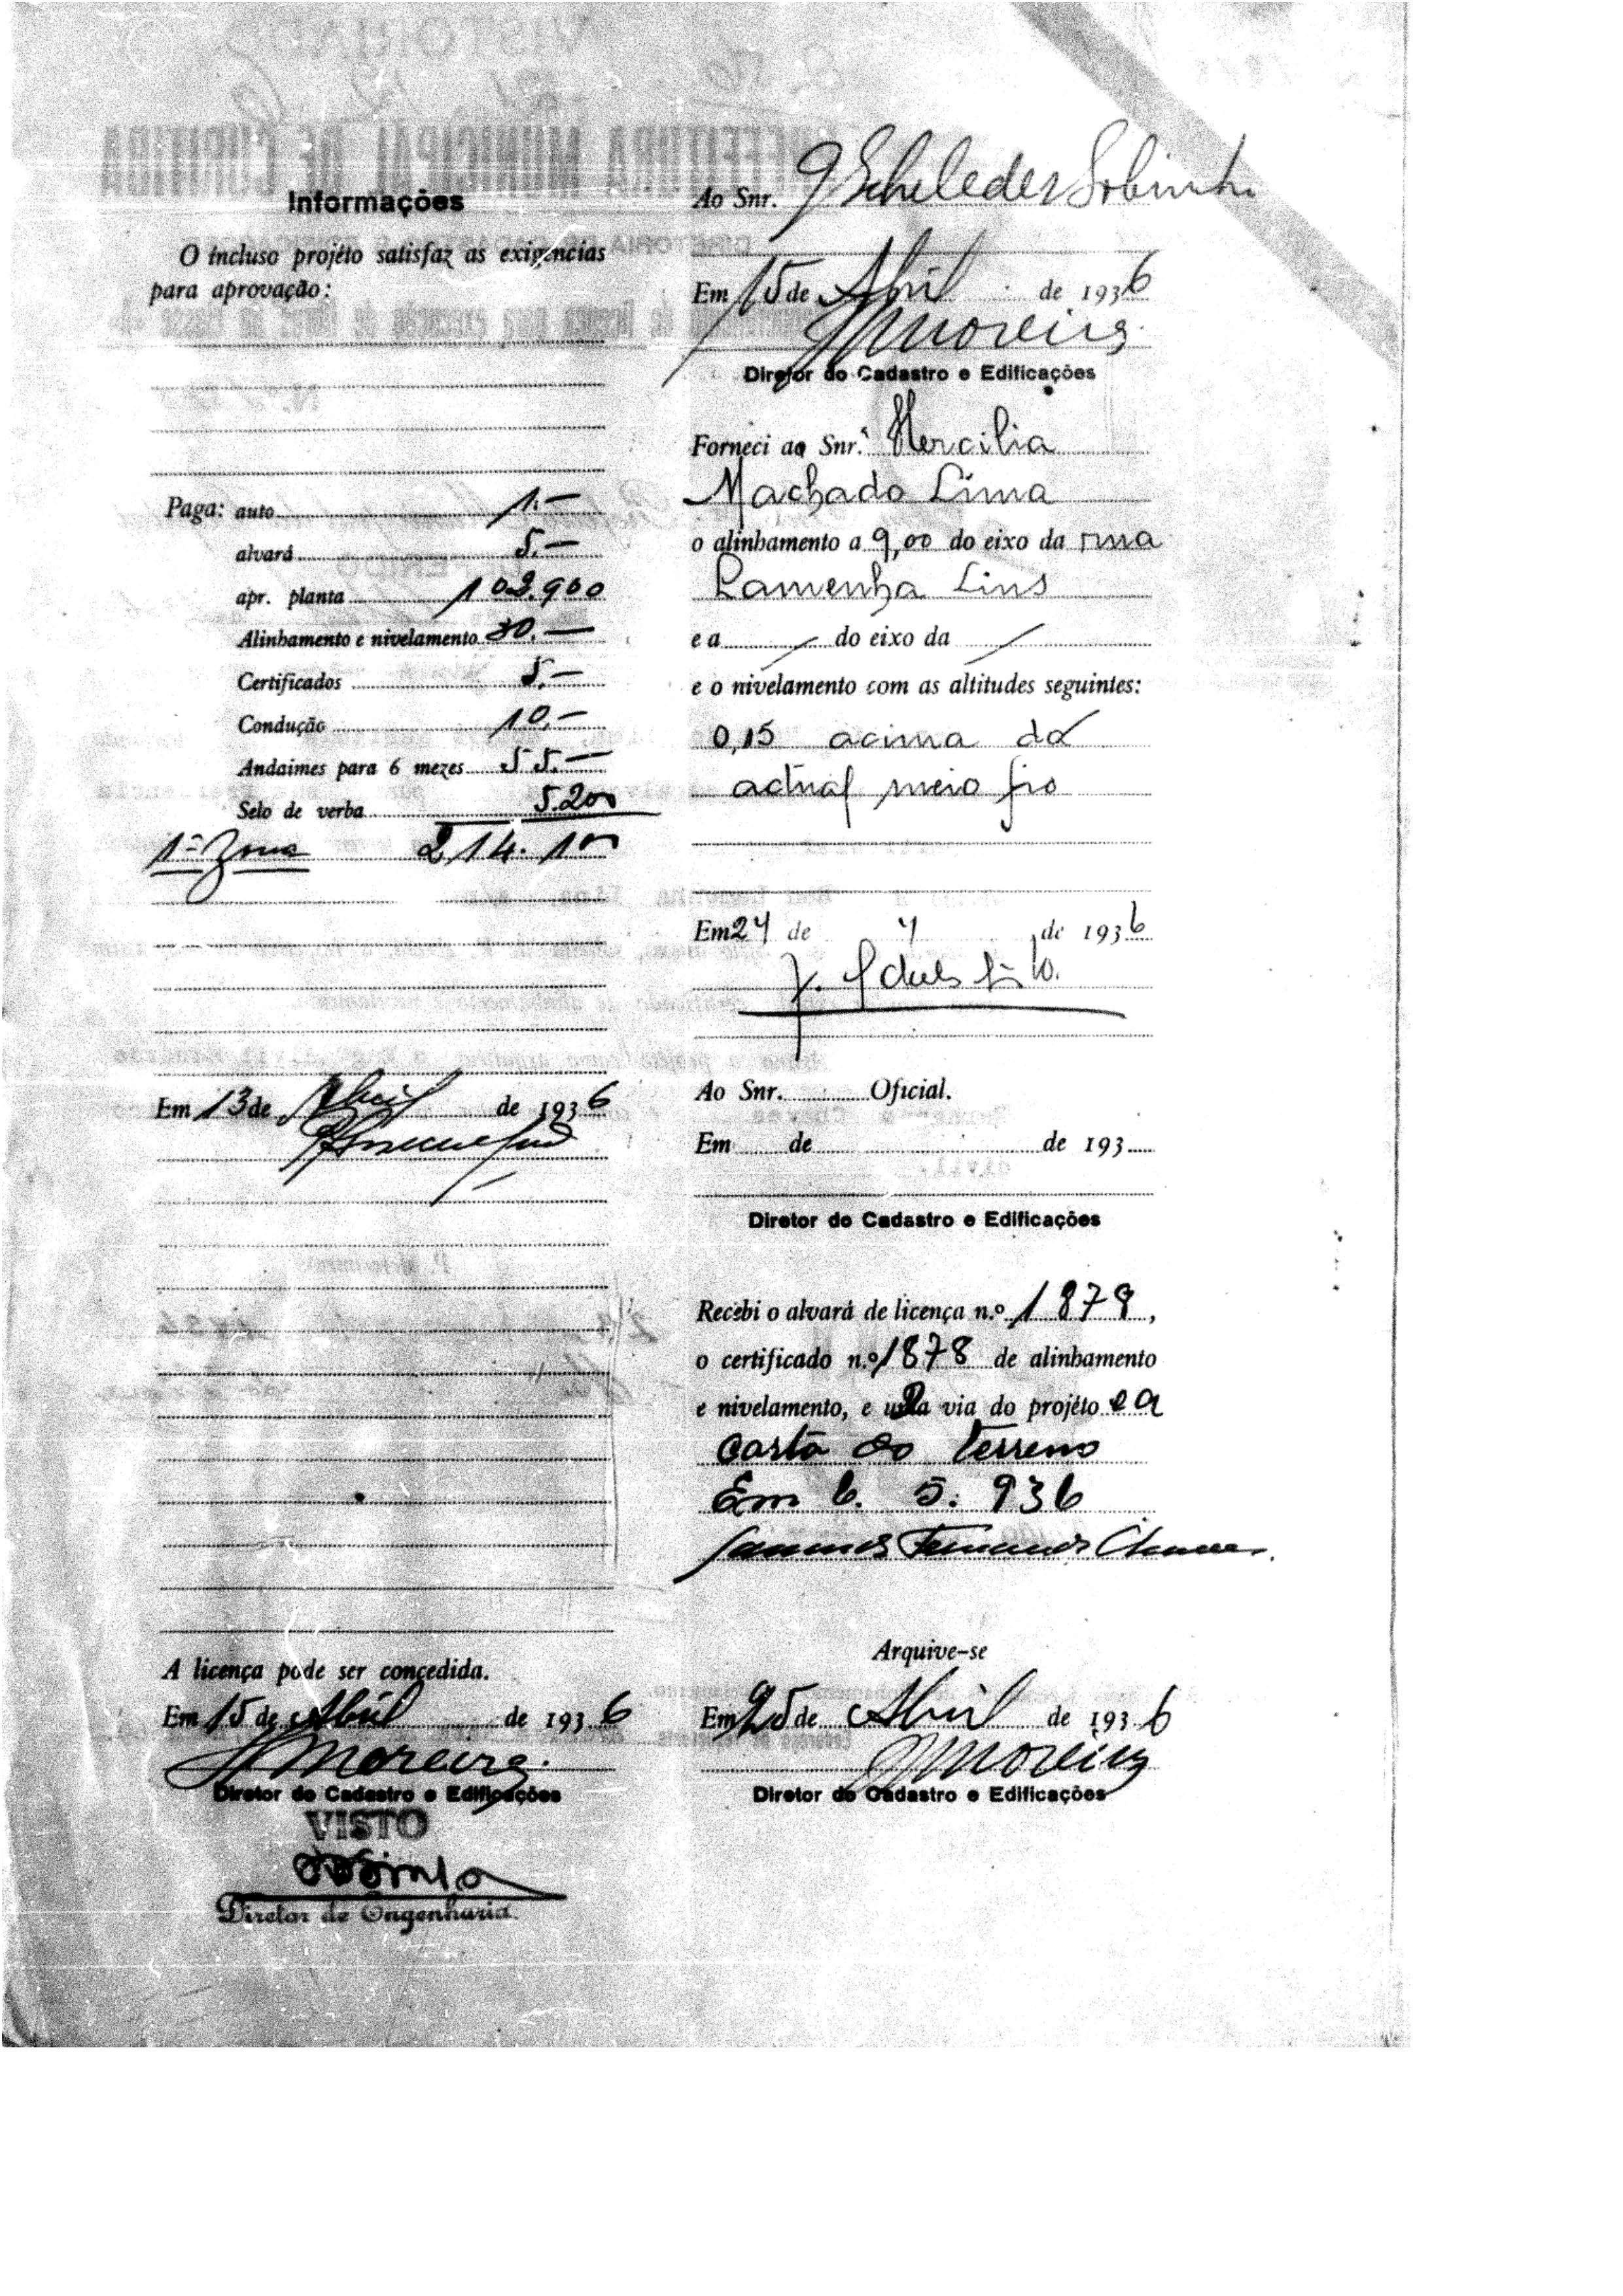 Informações
O incluso projéto satisfaz as exigencias
para aprovação:
Paga: auto 1.—
alvará 5.—
apr. planta 102.900
Alinhamento e nivelamento 30.—
Certificados 5.—
Condução 10.—
Andaimes para 6 mezes 55.—
Selo de verba 5.200
1ª Zona 214.100
Em 13 de Abril de 1936
A licença pode ser concedida.
Em 15 de Abril de 1936
Moreira
Diretor do Cadastro e Edificações
VISTO
Diretor de Engenharia
Ao Snr. Scheleder Sobinho
Em 15 de Abril de 1936
Moreira
Diretor do Cadastro e Edificações
Forneci ao Snr.ª Hercilia
Machado Lima
o alinhamento a 9,00 do eixo da rua
Lamenha Lins
e a / do eixo da /
e o nivelamento com as altitudes seguintes:
0,15 acima do
actual meio fio
Em 24 de 4 de 1936
Ao Snr. Oficial.
Em de de 193
Diretor do Cadastro e Edificações
Recebi o alvará de licença n.º 1879,
o certificado n.º 1878 de alinhamento
e nivelamento, e via do projéto e a
carta do terreno
Em 6. 5. 936
Fernandes Chaves
Arquive-se
Em 25 de Abril de 1936
Moreira
Diretor do Cadastro e Edificações